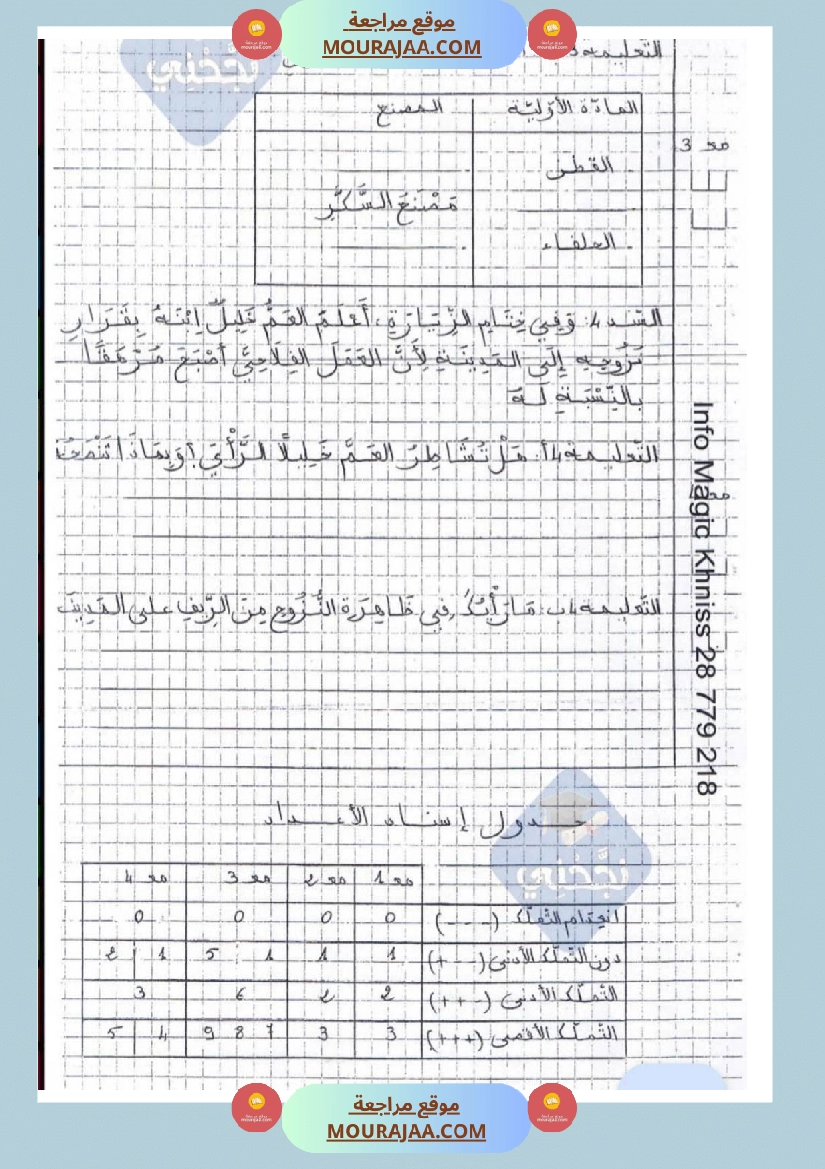 موقع مراجعة
MOURAJAA.COM
نجحني
المادّة الأوّليّة المصنع
مع 3
- القطن
مَصْنَعُ السُّكَّرِ
- الحلفاء
السّند 4: وَفِي خِتَامِ الزِّيَارَةِ، أَعْلَمَ العَمُّ خَلِيلٌ اِبْنَهُ بِقَرَارِ
نُزُوحِهِ إِلَى المَدِينَةِ لِأَنَّ العَمَلَ الفِلَاحِيَّ أَصْبَحَ مُرْهِقًا
بِالنِّسْبَةِ لَهُ
التّعليمة 4 أ: هَلْ تُشَاطِرُ العَمَّ خَلِيلًا الرَّأْيَ؟ وَبِمَاذَا تَنْصَحُهُ
مع 4
التّعليمة 4 ب: مَا رَأْيُكَ فِي ظَاهِرَةِ النُّزُوحِ مِنَ الرِّيفِ على المَدِينَة
Info Magic Khniss 28 779 218
جدول إسناد الأعداد
نجحني
مع 1 مع 2 مع 3 مع 4
انعدام التملّك (- - -) 0 0 0 0
دون التملّك الأدنى (+ - -) 1 1 1 5 1 2
التّملّك الأدنى (+ + -) 2 2 6 3
التّملّك الأقصى (+++) 3 3 7 8 9 4 5
موقع مراجعة
MOURAJAA.COM